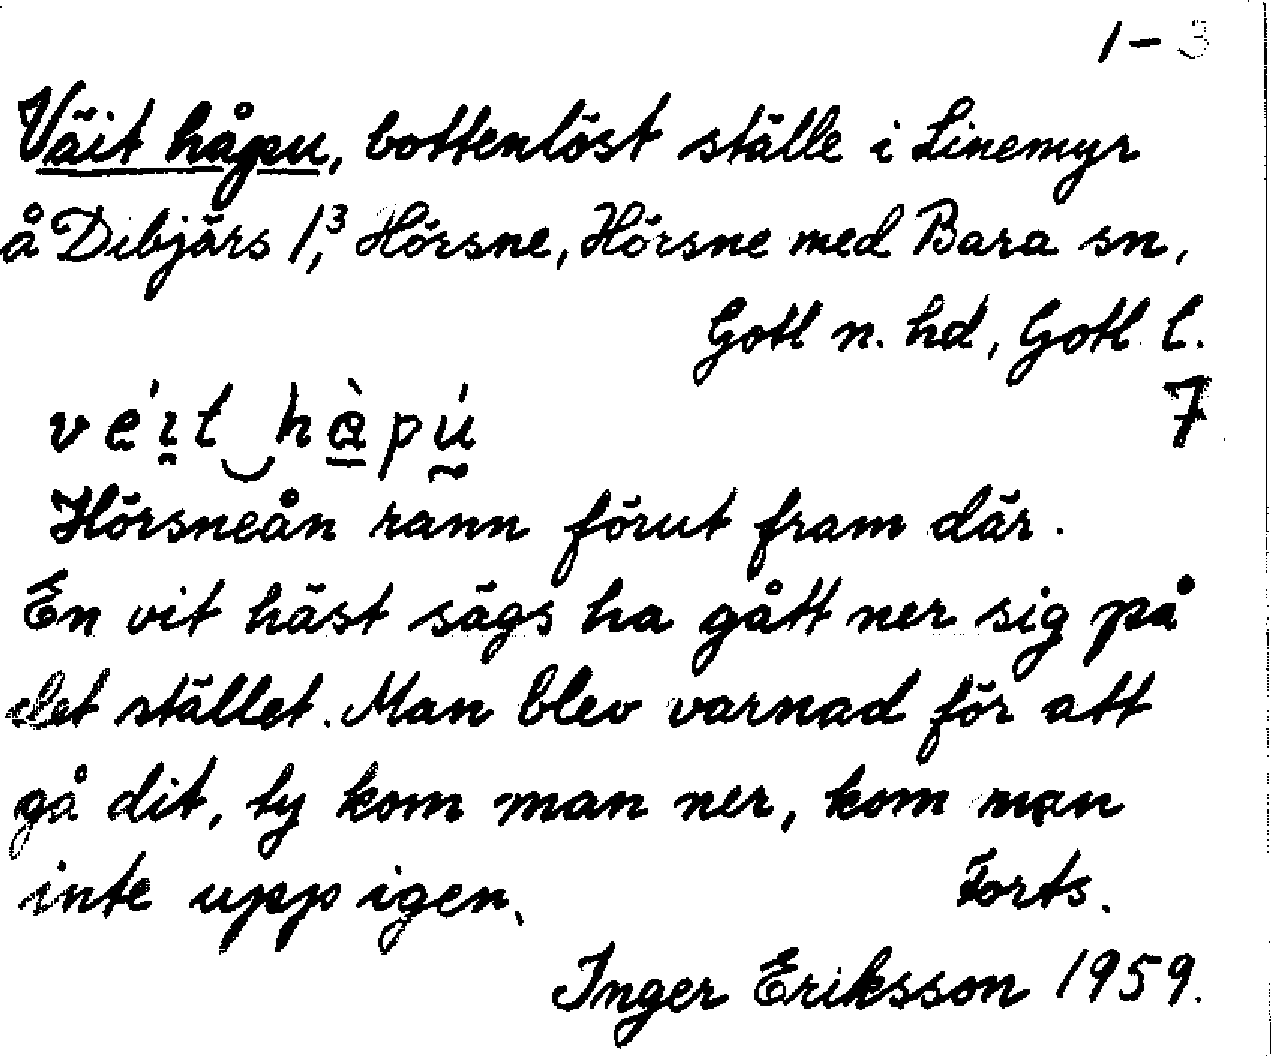 1-3
Väit håpu, bottenlöst ställe i Linemyr
å Dibjärs 1³, Hörsne, Hörsne med Bara sn,
Gotl n. hd, Gotl l.
véɪt‿hàpú
7
Hörsneån rann förut fram där.
En vit häst sägs ha gått ner sig på
det stället. Man blev varnad för att
gå dit, ty kom man ner, kom man
inte upp igen.
Forts.
Inger Eriksson 1959.